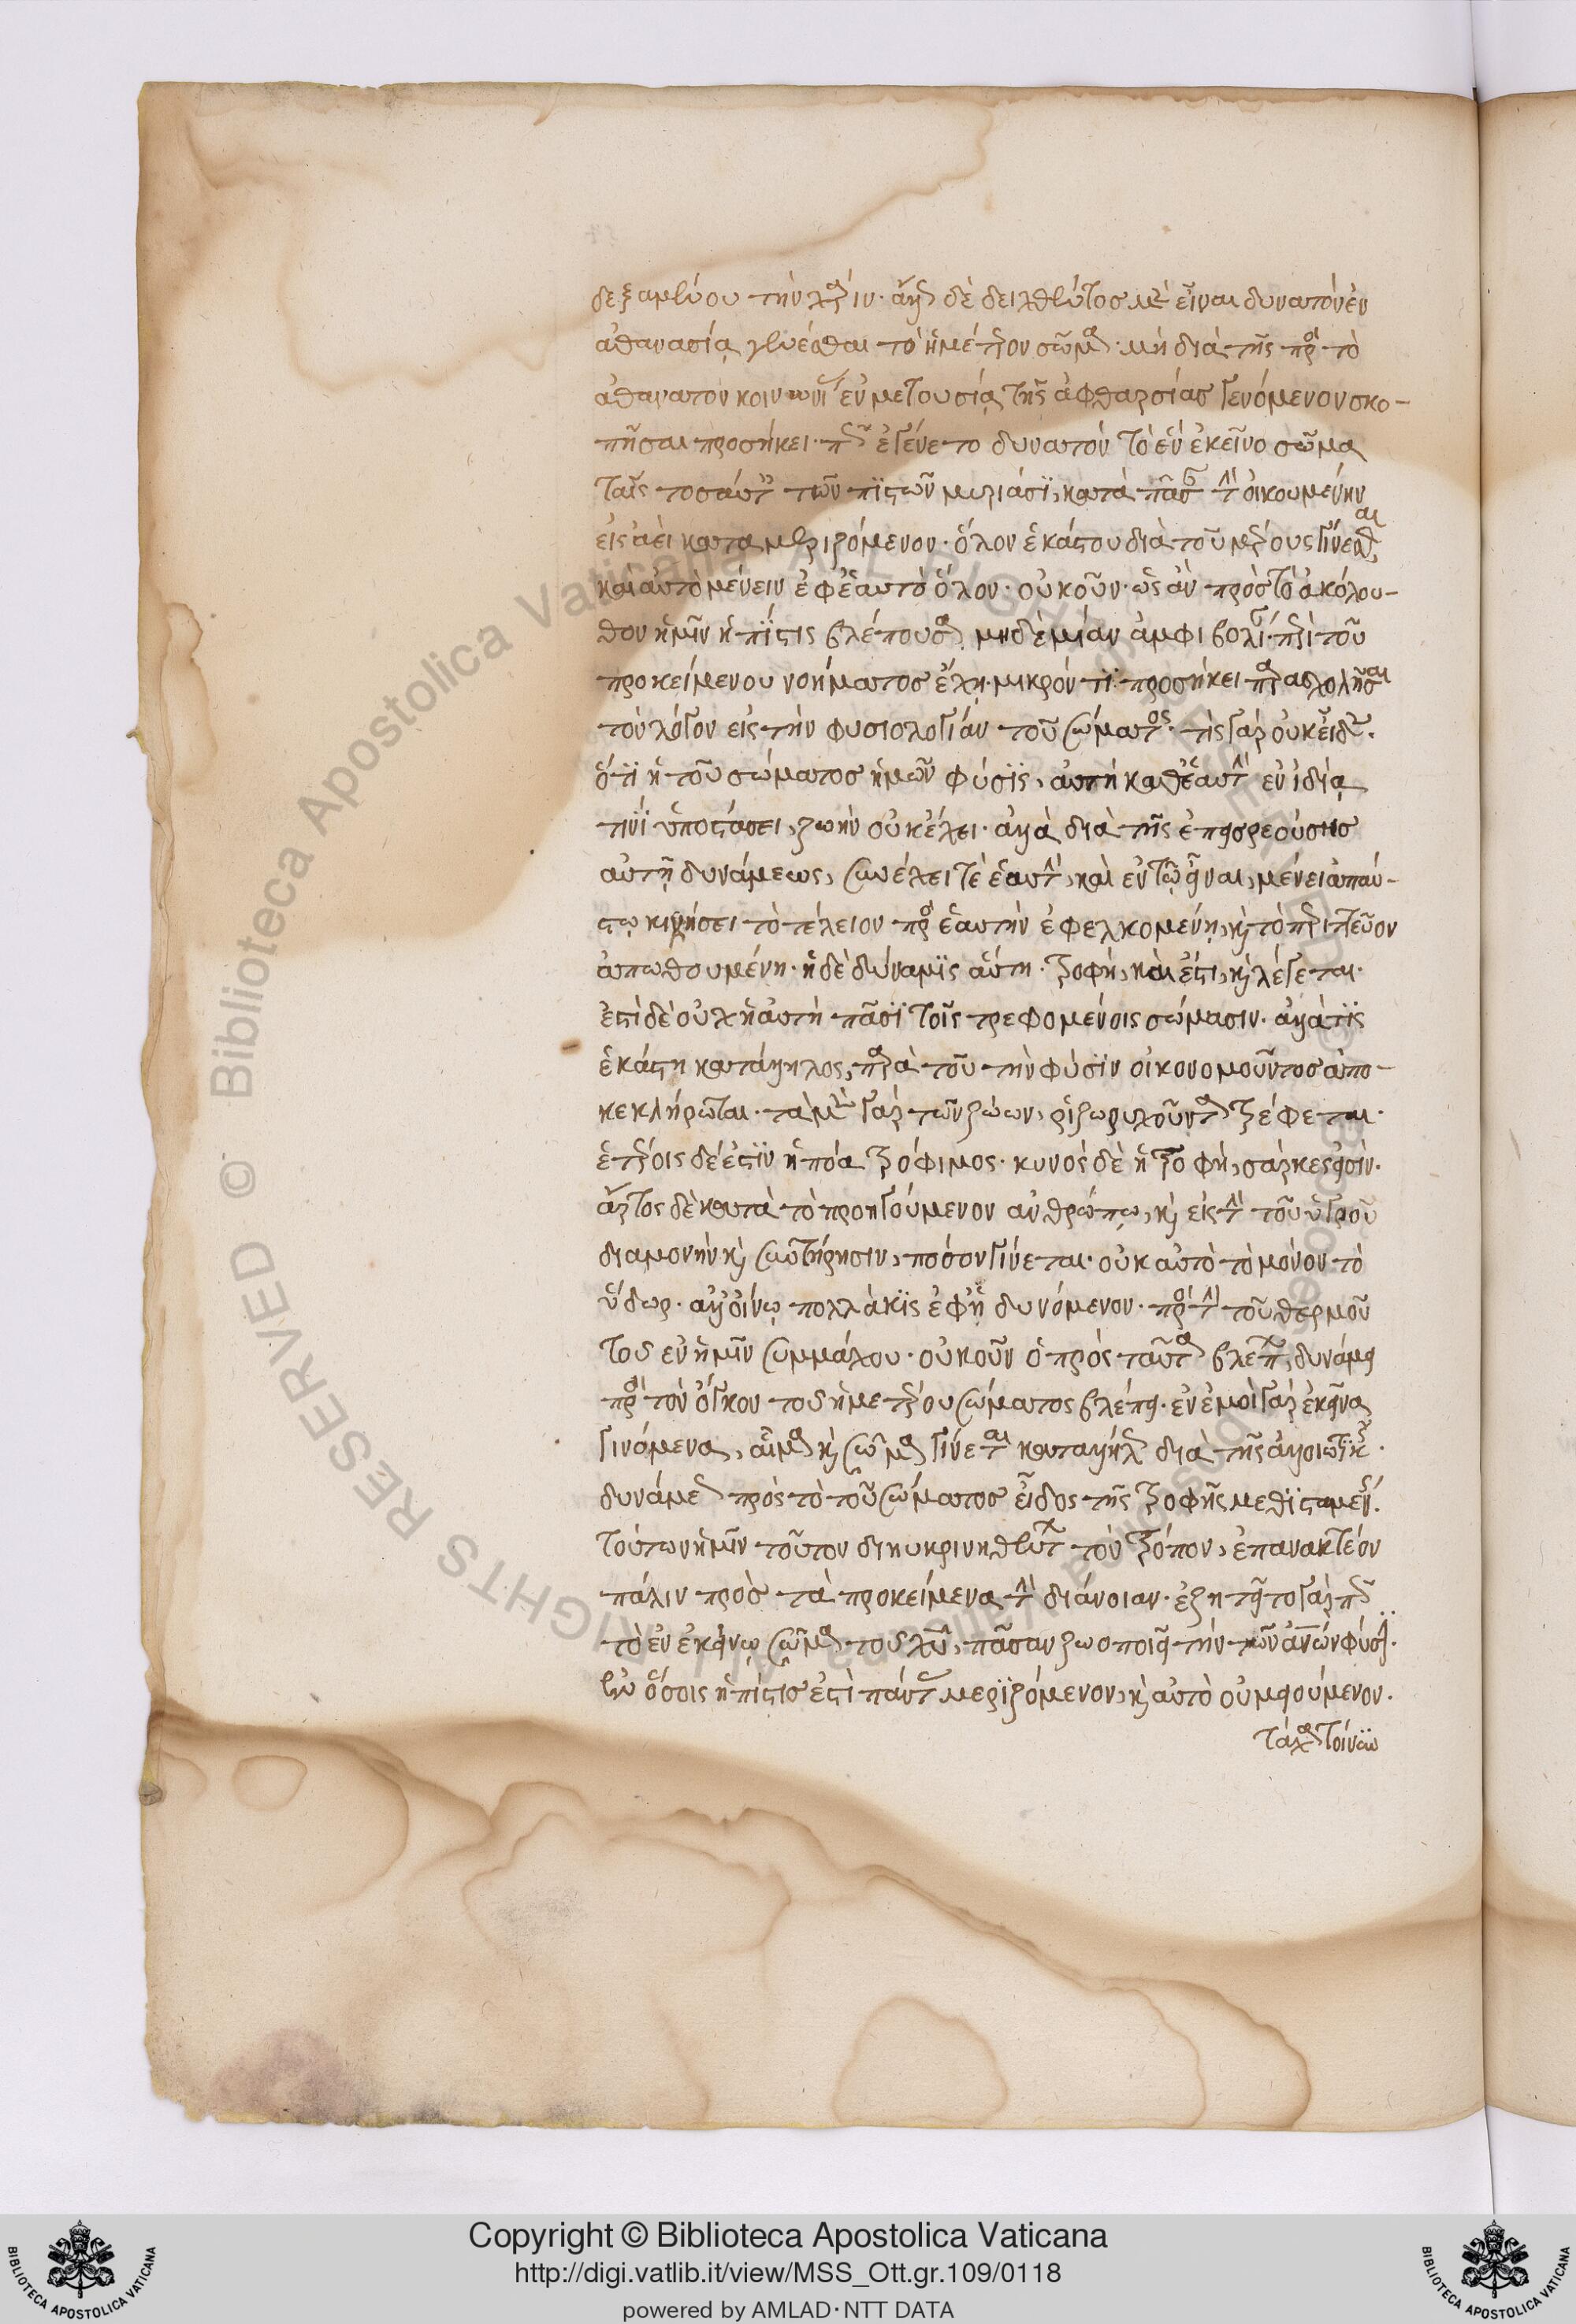 δεξαμένου τὴν τάξιν. ἀλλὰ δὲ δειχθέντος μὴ εἶναι δυνατὸν ἐν
ἀθανασίᾳ γενέσθαι τὸ ἡμέτερον σῶμα. μὴ διὰ τῆς πρὸς τὸ
ἀθάνατον κοινωνίας ἐν μετουσίᾳ τῆς ἀφθαρσίας γενόμενον σκο-
πῆσαι προσήκει. πῶς ἐγένετο δυνατὸν τὸ ἓν ἐκεῖνο σῶμα
ταῖς τοσαύταις τῶν πιστῶν μυριάσι, κατὰ πᾶσαν τὴν οἰκουμένην
εἰς ἀεὶ καταμεριζόμενον. ὅλον ἑκάστου διὰ τοῦ μέρους γίνεσθαι
καὶ αὐτὸ μένειν ἐφ' ἑαυτὸ ὅλον. οὐκοῦν. ὡς ἂν πρὸς τὸ ἀκόλου-
θον ἡμῖν ἡ πίστις βλέπουσα, μηδεμίαν ἀμφιβολίαν περὶ τοῦ
προκείμενου νοήματος ἔχῃ. μικρόν τι προσήκει παρασχολῆσαι
τὸν λόγον εἰς τὴν φυσιολογίαν τοῦ σώματος. τίς γὰρ οὐκ εἶδεν.
ὅτι ἡ τοῦ σώματος ἡμῶν φύσις, αὐτὴ καθ' ἑαυτὴν ἐν ἰδίᾳ
τινὶ ὑποστάσει, ζωὴν οὐκ ἔχει. ἀλλὰ διὰ τῆς ἐπεισρεούσης
αὐτῇ δυνάμεως, συνέχει τὲ ἑαυτὴν, καὶ ἐν τῷ εἶναι, μένει ἀπαύ-
στῳ κινήσει τὸ τέλειον πρὸς ἑαυτὴν ἐφελκομένη, καὶ τὸ περιττεῦον
ἀπωθουμένη. ἡ δὲ δύναμις αὕτη. τροφή, καὶ ἔστι, καὶ λέγεται.
ἔστι δὲ οὐχ ἡ αὐτὴ πᾶσι τοῖς τρεφομένοις σώμασιν. ἀλλά τις
ἑκάστη κατάλληλος, παρὰ τοῦ τὴν φύσιν οἰκονομοῦντος ἀπο-
κεκλήρωται. τὰ μὲν γὰρ τῶν ζώων, ῥιζωρυχοῦντα τρέφεται.
ἑτέροις δέ ἐστιν ἡ πόα τρόφιμος. κυνὸς δὲ ἡ τροφή, σάρκες εἰσίν.
ἄρτος δὲ κατὰ τὸ προηγούμενον ἀνθρώπῳ, καὶ εἰς τὴν τοῦ ὑγροῦ
διαμονὴν καὶ συντήρησιν, ποτὸν γίνεται. οὐκ αὐτὸ τὸ μόνον τὸ
ὕδωρ. ἀλλ' οἴνῳ πολλάκις ἐφηδυνόμενον. πρὸς τὴν τοῦ θερμοῦ
τοῦ ἐν ἡμῖν συμμάχου. οὐκοῦν ὁ πρὸς ταῦτα βλέπων, δυνάμει
πρὸς τὸν ὄγκον τοῦ ἡμετέρου σώματος βλέπει. ἐν ἐμοὶ γὰρ ἐκεῖνα
γινόμενα, αἷμα καὶ σῶμα γίνεται καταλλήλως διὰ τῆς ἀλλοιωτικῆς.
δυνάμεως πρὸς τὸ τοῦ σώματος εἶδος τῆς τροφῆς μεθισταμένης.
τούτων ἡμῖν τοῦτον διευκρινηθέντων τὸν τρόπον, ἐπανακτέον
πάλιν πρὸς τὰ προκείμενα τὴν διάνοιαν. ἐζητεῖτο γὰρ πῶς
τὸ ἐν ἐκείνῳ σῶμα τοῦ χυ, πᾶσαν ζωοποιεῖ τὴν τῶν ἀνων φύσιν.
ἐν ὅσοις ἡ πίστις ἐστὶ πάντας μεριζόμενον, καὶ αὐτὸ οὐ μειούμενον.
τάχα τοίνυν